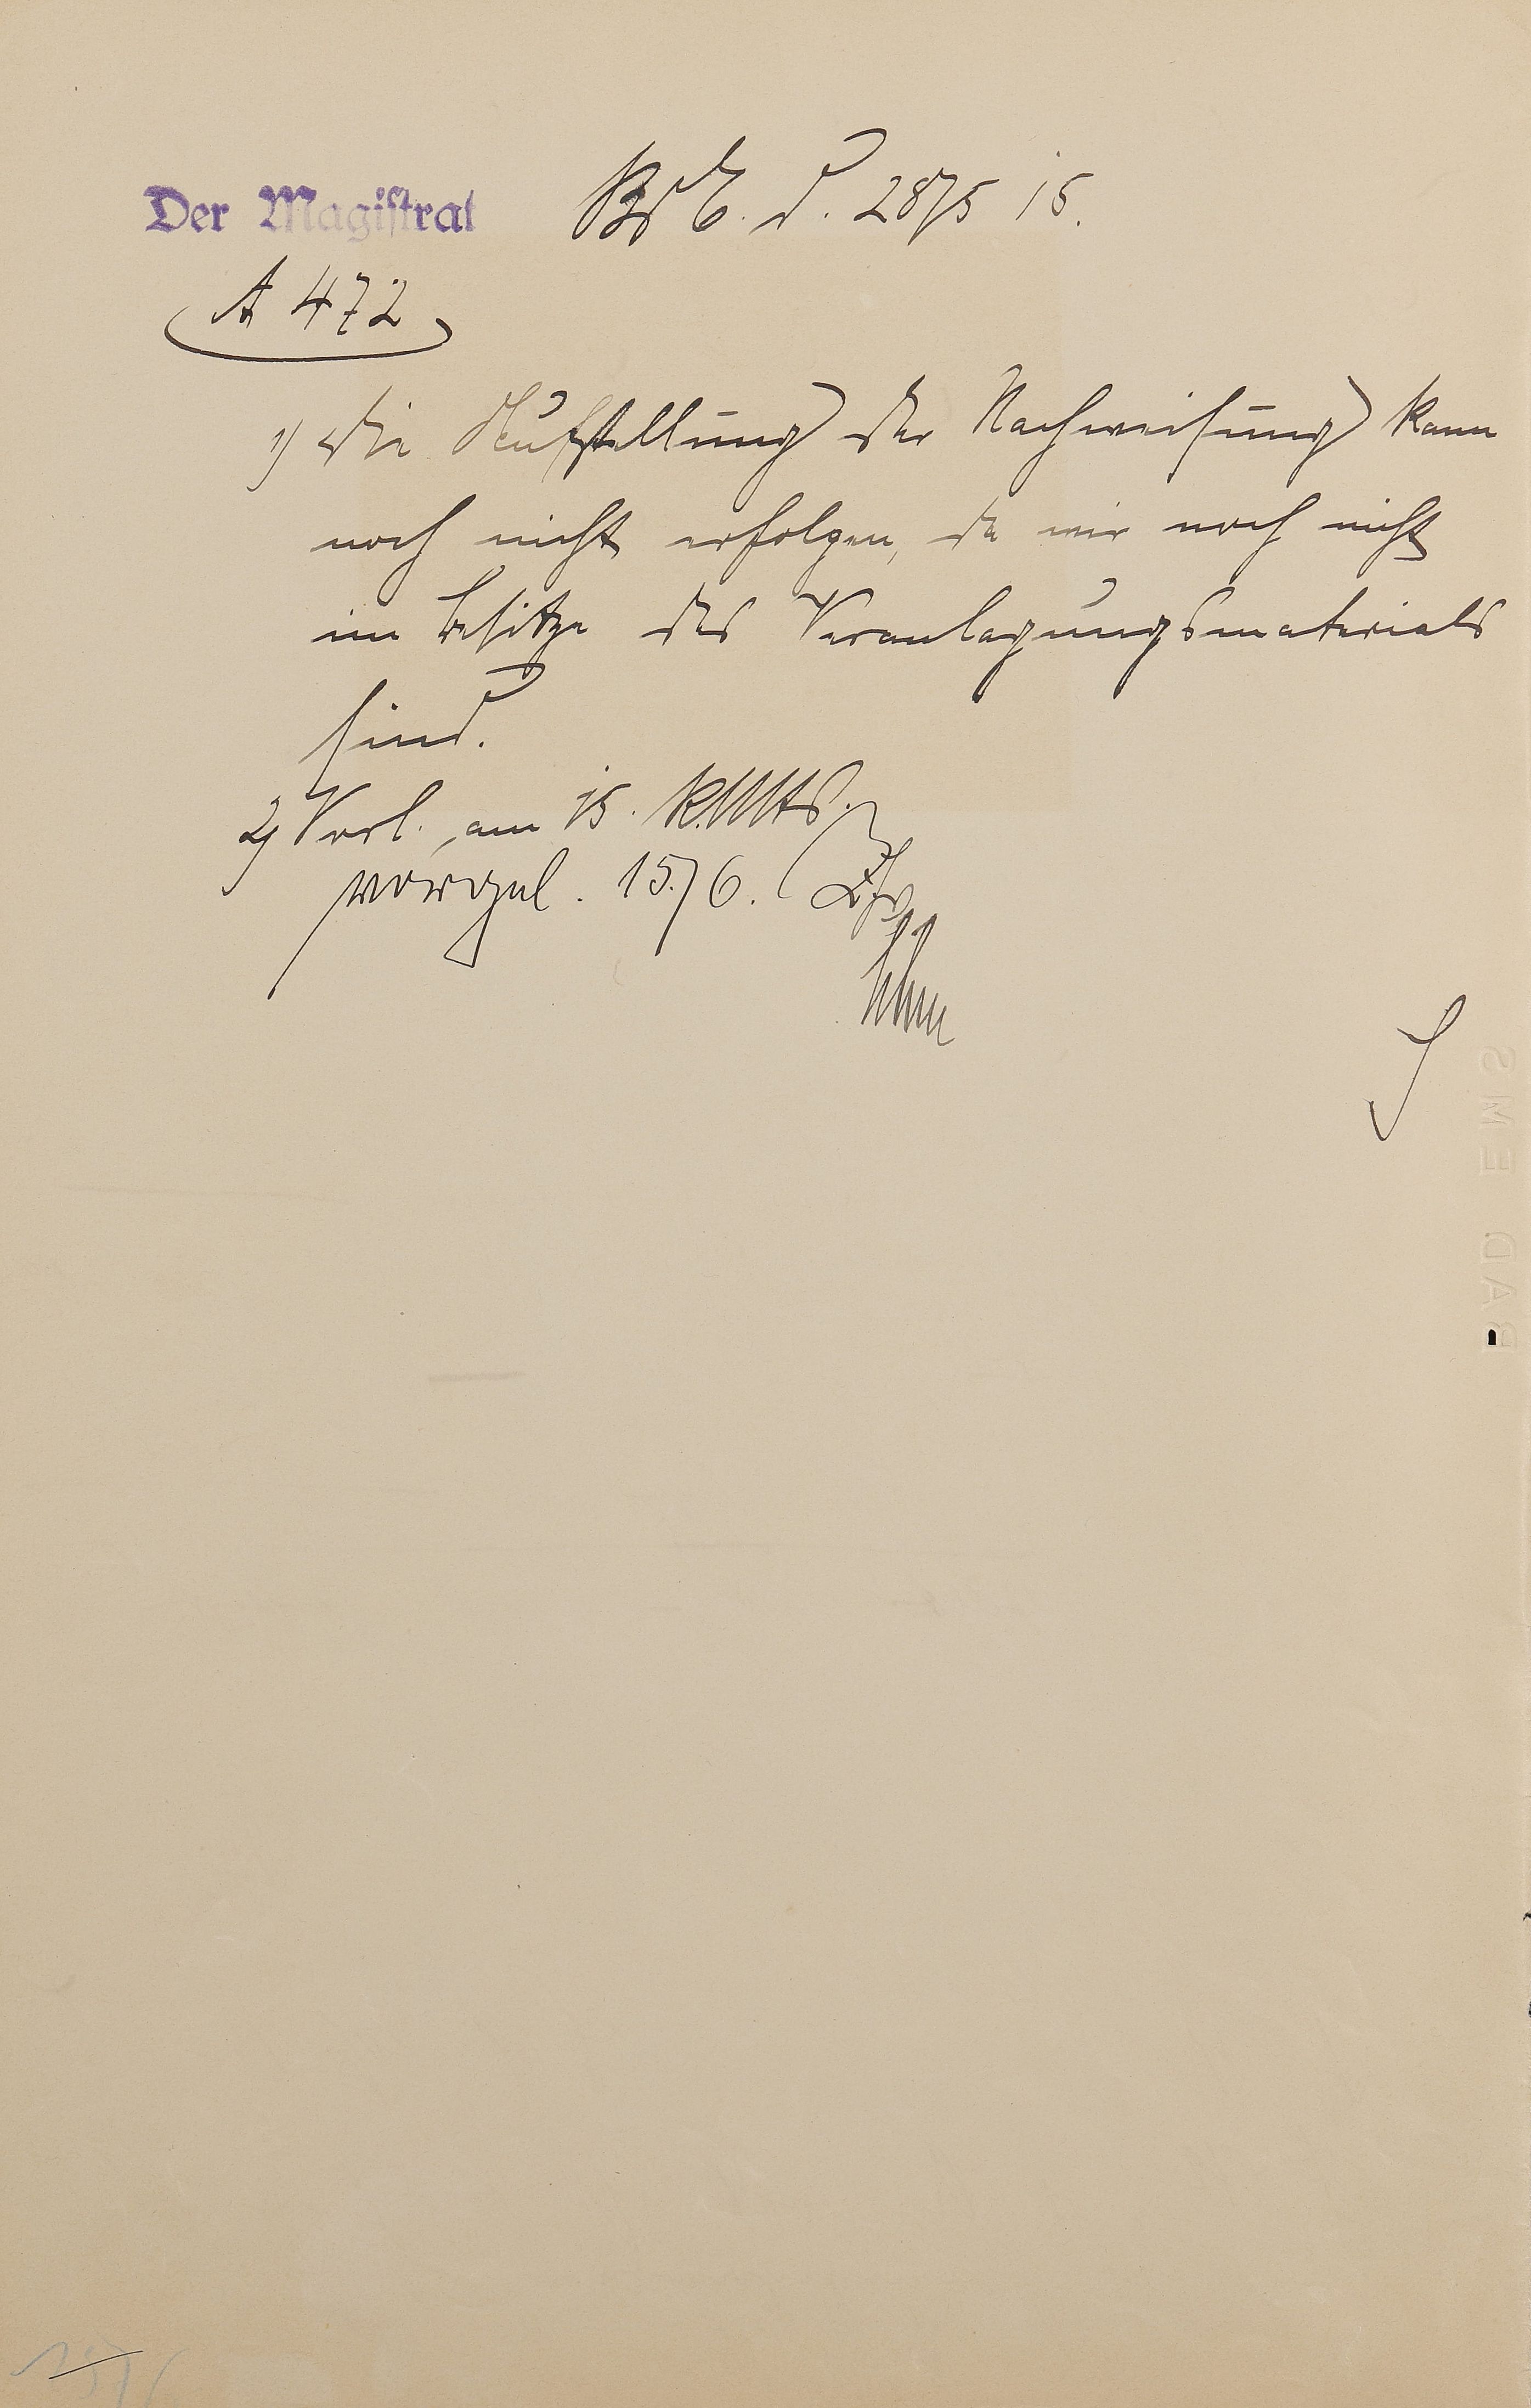 Der Magistrat
B. E. d. 28/5 15.
A 472
1) Die Aufstellung der Nachweisung kann
noch nicht erfolgen, da wir noch nicht
im Besitze des Veranlagungsmaterials
sind.
2) Vorl. am 15. k. Mts.
vorgel. 15./6.
BAD EMS